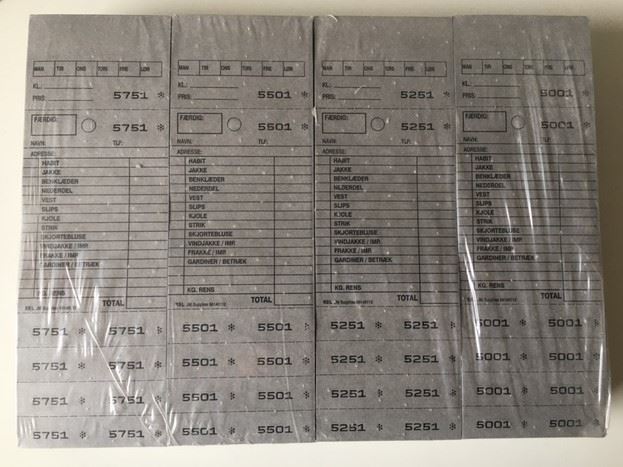 MAN TIR ONS TORS FRE LØR
KL.:
PRIS: 5751 *
FÆRDIG: 5751 *
NAVN: TLF.:
ADRESSE:
HABIT
JAKKE
BENKLÆDER
NEDERDEL
VEST
SLIPS
KJOLE
STRIK
SKJORTEBLUSE
VINDJAKKE / IMP.
FRAKKE / IMP.
GARDINER / BETRÆK
KG. RENS
TOTAL
5751 * 5751 *
5751 * 5751 *
5751 * 5751 *
5751 * 5751 *
MAN TIR ONS TORS FRE LØR
KL.:
PRIS: 5501 *
FÆRDIG: 5501 *
NAVN: TLF.:
ADRESSE:
HABIT
JAKKE
BENKLÆDER
NEDERDEL
VEST
SLIPS
KJOLE
STRIK
SKJORTEBLUSE
VINDJAKKE / IMP.
FRAKKE / IMP.
GARDINER / BETRÆK
KG. RENS
TOTAL
5501 * 5501 *
5501 * 5501 *
5501 * 5501 *
5501 * 5501 *
MAN TIR ONS TORS FRE LØR
KL.:
PRIS: 5251 *
FÆRDIG: 5251 *
NAVN: TLF.:
ADRESSE:
HABIT
JAKKE
BENKLÆDER
NEDERDEL
VEST
SLIPS
KJOLE
STRIK
SKJORTEBLUSE
VINDJAKKE / IMP.
FRAKKE / IMP.
GARDINER / BETRÆK
KG. RENS
TOTAL
5251 * 5251 *
5251 * 5251 *
5251 * 5251 *
5251 * 5251 *
MAN TIR ONS TORS FRE LØR
KL.:
PRIS: 5001 *
FÆRDIG: 5001 *
NAVN: TLF.:
ADRESSE:
HABIT
JAKKE
BENKLÆDER
NEDERDEL
VEST
SLIPS
KJOLE
STRIK
SKJORTEBLUSE
VINDJAKKE / IMP.
FRAKKE / IMP.
GARDINER / BETRÆK
KG. RENS
TOTAL
5001 * 5001 *
5001 * 5001 *
5001 * 5001 *
5001 * 5001 *